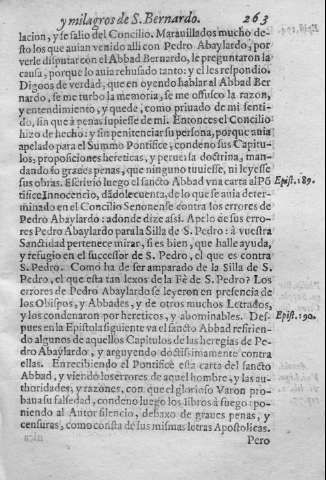 y milagros de S. Bernardo. 263
lacion, y se salio del Concilio. Marauillados mucho de-
sto los que auian venido alli con Pedro Abaylardo, por
verle disputar con el Abbad Bernardo, le preguntaron la
causa, porque lo auia rehusado tanto: y el les respondio.
Digoos de verdad, que en oyendo hablar al Abbad Ber
nardo, se me turbo la memoria, se me offusco la razon,
y entendimiento, y quede, como priuado de mi senti-
do, sin que à penas supiesse de mi. Entonces el Concilio
hizo de hecho: y sin penitenciar su persona, porque auia
apelado para el Summo Pontifice, condeno sus Capitu-
los, proposiciones hereticas, y peruersa doctrina, man-
dando so graues penas, que ninguno tuuiesse, ni leyesse
sus obras. Escriuiò luego el sancto Abbad vna carta al Põ
tifice Innocencio, dãdole cuenta, de lo que se auia deter-
minado en el Concilio Senonense contra los errores de
Pedro Abaylardo: adonde dize assi. Apelo de sus erro-
res Pedro Abaylardo para la Silla de S. Pedro: à vuestra
Sanctidad pertenece mirar, si es bien, que halle ayuda,
y refugio en el successor de S. Pedro, el que es contra
S. Pedro. Como ha de ser amparado de la Silla de S.
Pedro, el que està tan lexos de la Fè de S. Pedro? Los
errores de Pedro Abaylardo se leyeron en presencia de
los Obispos, y Abbades, y de otros muchos Letrados,
y los condenaron por hereticos, y abominables. Des-
pues en la Epistola siguiente va el sancto Abbad refirien-
do algunos de aquellos Capitulos de las heregias de Pe-
dro Abaylardo, y arguyendo doctissimamente contra
ellas. En recibiendo el Pontifice esta carta del sancto
Abbad, y viendo los errores de aquel hombre, y las au-
thoridades, y razones, con que el glorioso Varon pro-
baua su falsedad, condeno luego los libros à fuego: po-
niendo al Autor silencio, debaxo de graues penas, y
censuras, como consta de sus mismas letras Apostolicas.
Pero
Epist. 189.
Epist. 190.